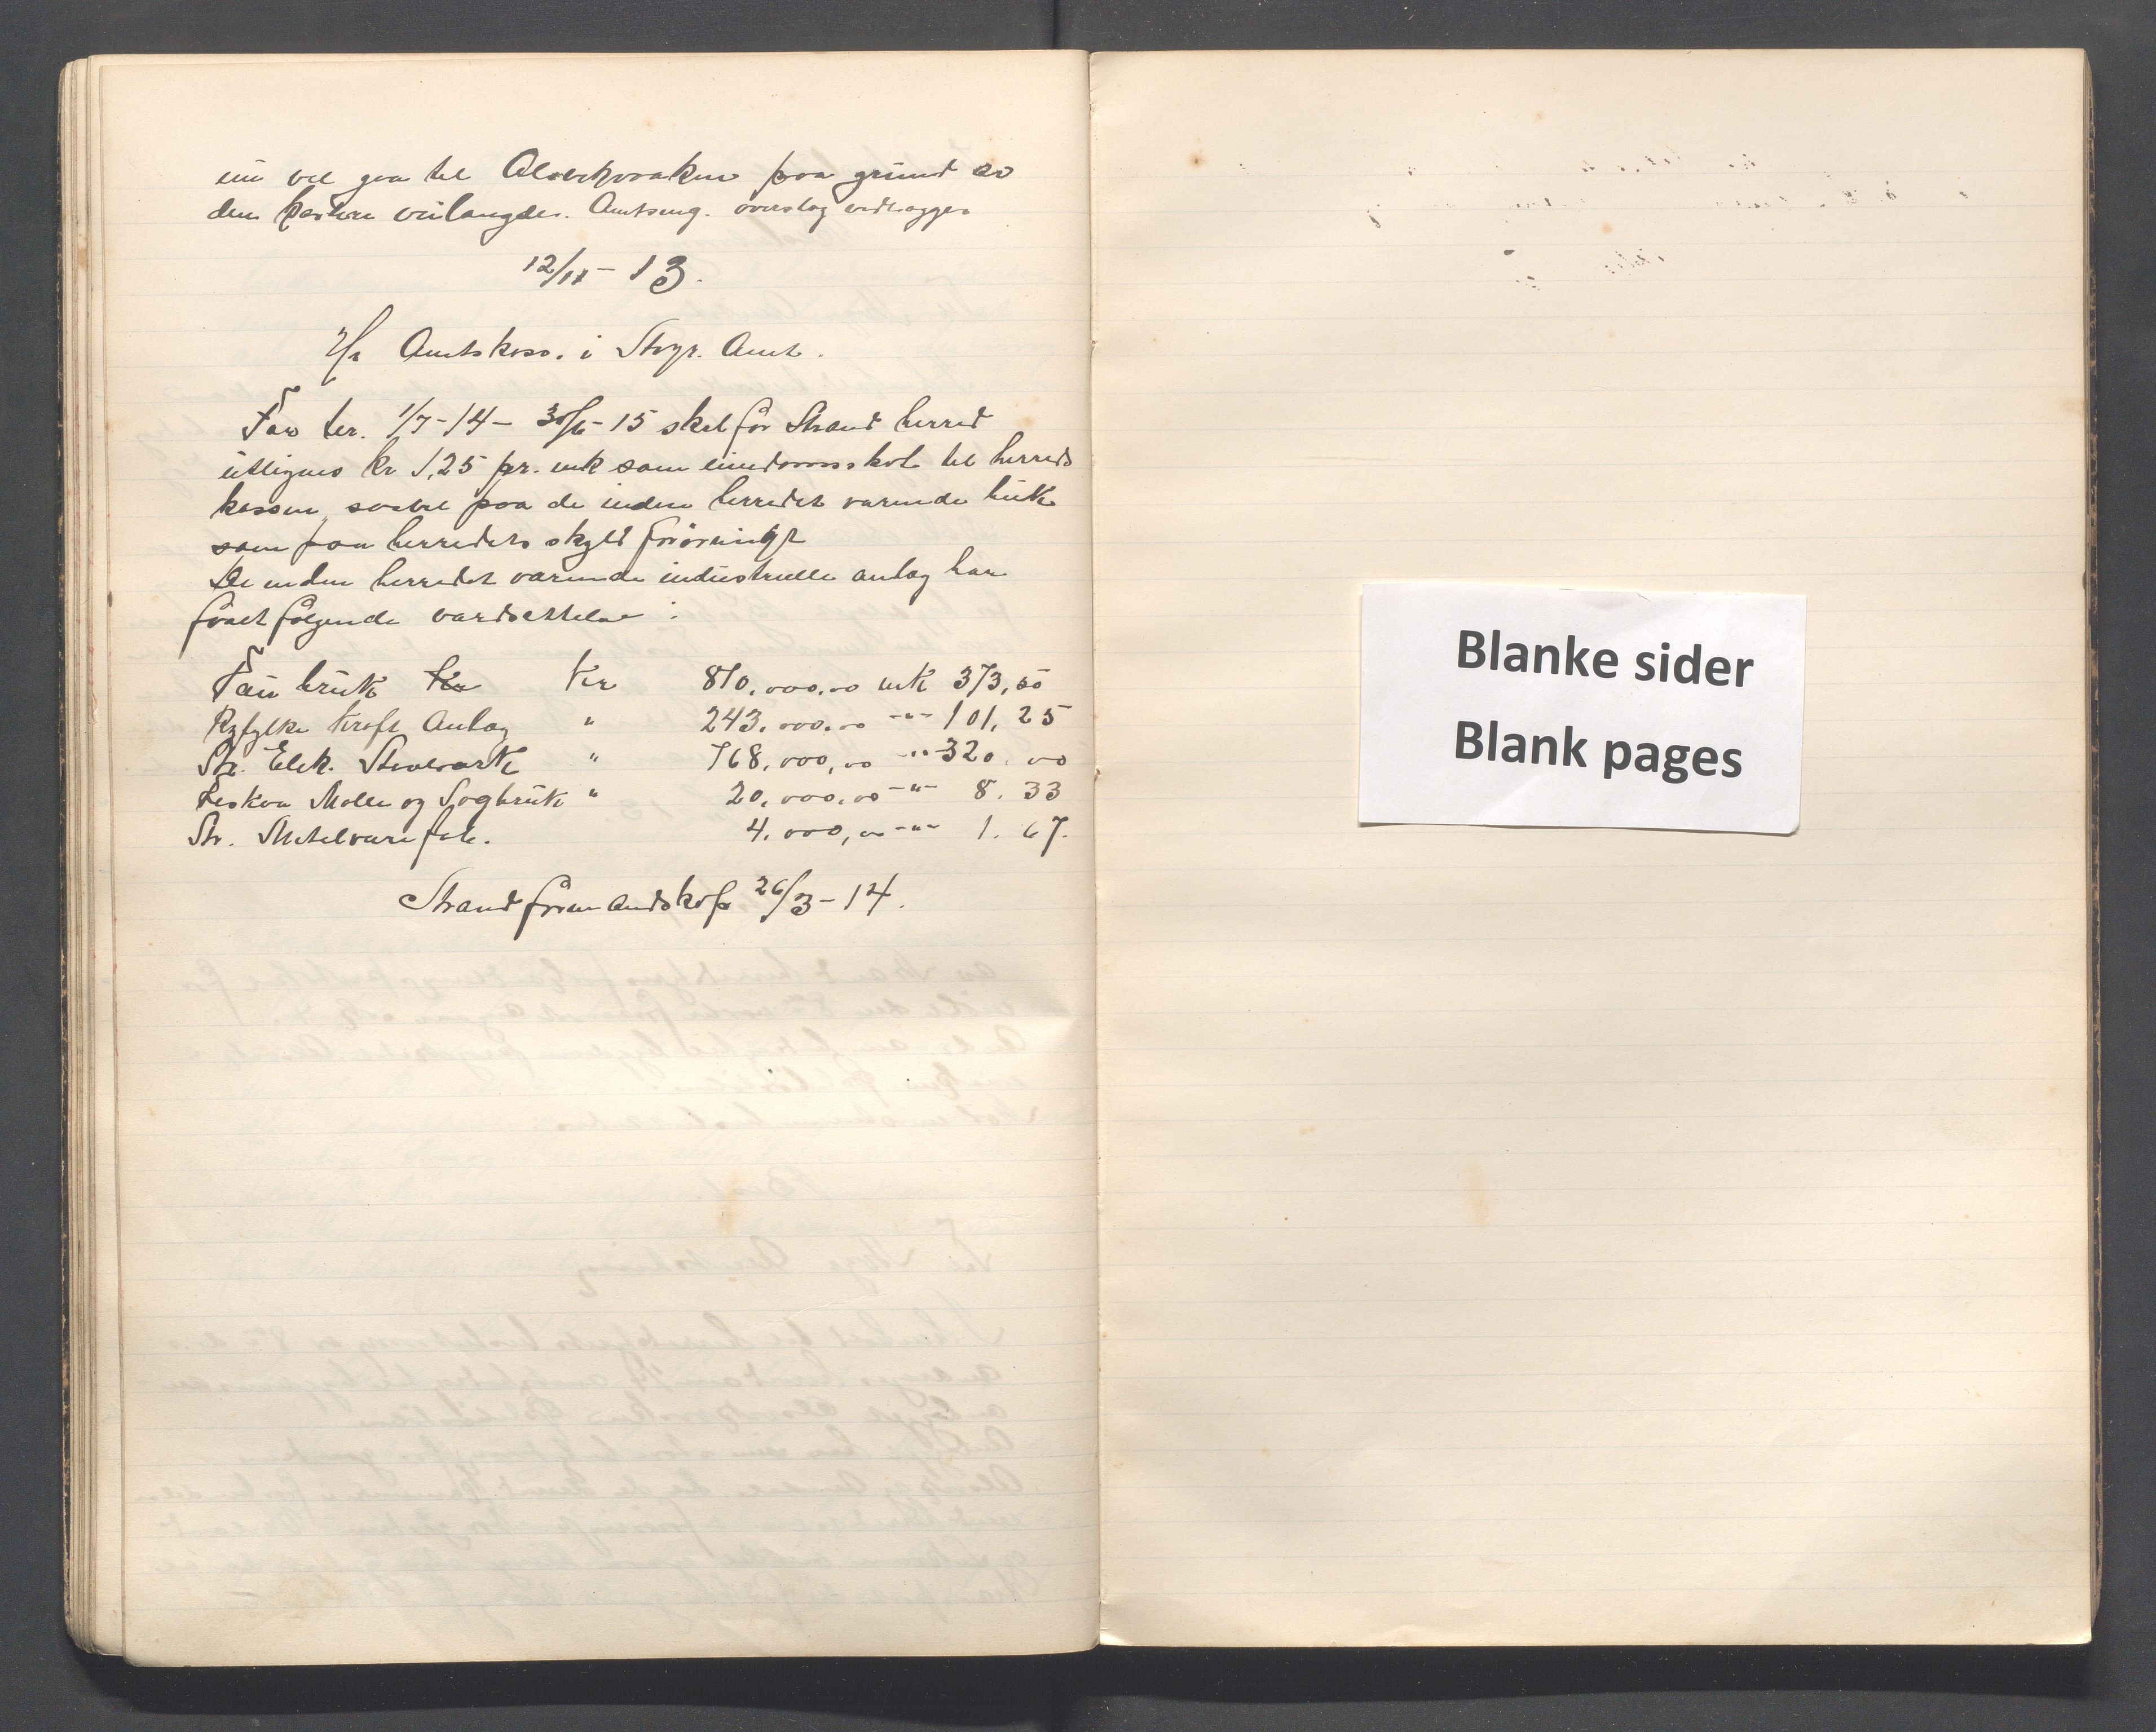 nu vel gaa til Alsvikvaaken paa grund av
den veilængde. Amtsing. overslag vedlægges
12/11 - 13.
Til Amtskass. i Stvgr. Amt.
For ter. 1/7-14 - 30/6-15 skal for Strand herred
utlignes kr 1,25 pr. mk som eiendomsskat til herreds
kassen, saavel paa de inden herredet værende bruk
som paa herredets skyld forøvrigt
De inden herredet værende industrielle anlæg har
faaet følgende værdsettelse :
Tau bruk Kr 810.000.00 mk 373,50
Ryfylke Kraft Anlæg " 243.000.00 -"- 101,25
Str. Elek. Staalverk " 768.000,00 -"- 320.00
Mølle og Sagbruk " 20.000.00 -"- 8.33
Str. Metalvarefab. 4.000,00 -"- 1.67.
Strand formandskap 26/3-14.
Blanke sider
Blank pages